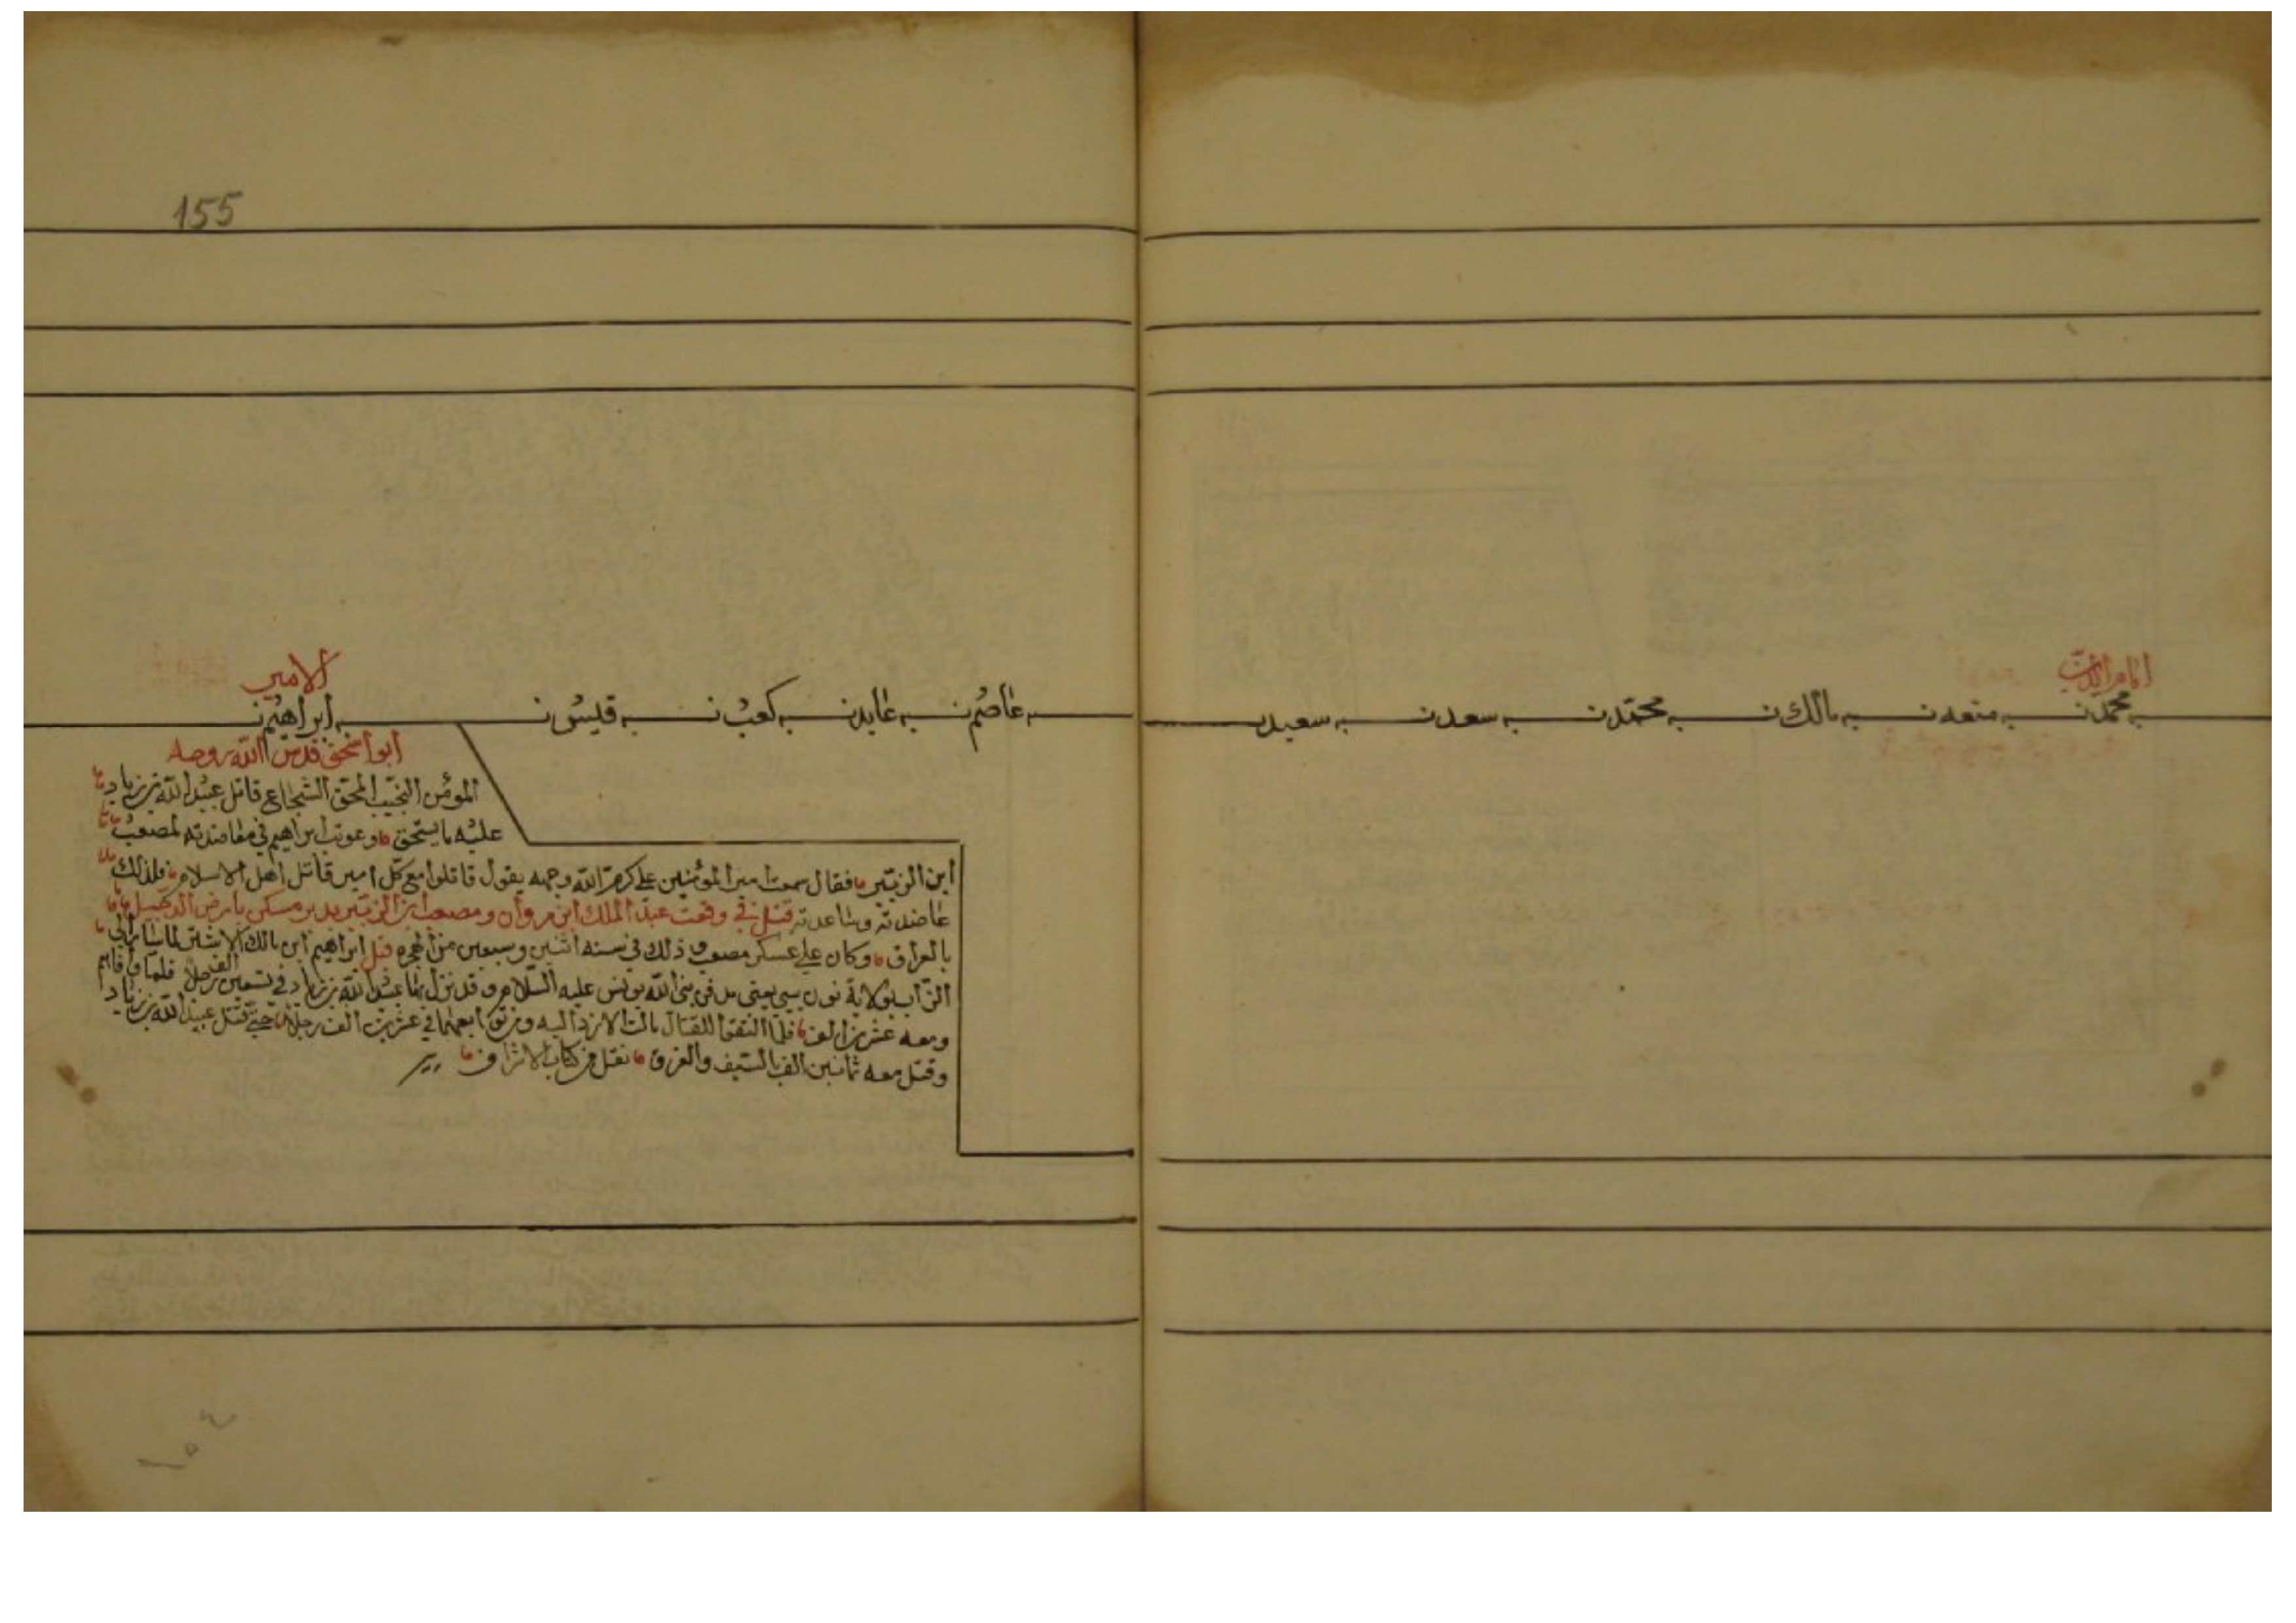 155
امام الدين
به محمد بن به متعه بن به مالك بن به محمد بن به سعد بن به سعيد بن
به عاصم بن به عايد بن به كعب بن به قيس بن به ابراهيم بن
الامير
ابو اسحق قدس الله روحه
المؤمن النجيب المحق الشجاع قاتل عبيد الله بن زياد
عليه ما يستحق وعوتب ابراهيم في معاضدته لمصعب
ابن الزبير فقال سمعت امير المؤمنين علي كرم الله وجهه يقول قاتلوا مع كل امير قاتل اهل الاسلام فلذلك
عاضدته وساعدته قتل في وقعت عبد الملك ابن مروان ومصعب بن الزبير بدير مسكن بارض الدجيل
بالعراق وكان علي عسكر مصعب وذلك في سنه اثنين وسبعين من الهجره قيل ابراهيم ابن مالك الاشتر لما سار الي
الزاب بولاية نون يعني مدفن نبي الله يونس عليه السلام وقد نزل بها عبيد الله بن زياد في تسعين الف رجلا فلما وافاهم
ومعه عشرين الف فلما التقوا للقتال مالت الازد اليه في عشرين الف رجلا حتي قتل عبيد الله بن زياد
وقتل معه ثمانين الف بالسيف والغرق نقل من كتاب الاشراف
١٥٤